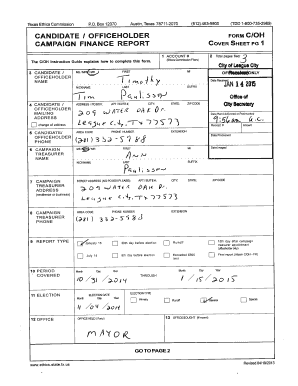 Texas Ethics Commission P.O. Box 12070 Austin, Texas 78711-2070 (512) 463-5800 (TDD 1-800-735-2989)
CANDIDATE / OFFICEHOLDER
CAMPAIGN FINANCE REPORT
FORM C/OH
COVER SHEET PG 1
The C/OH Instruction Guide explains how to complete this form.
1 ACCOUNT #
2 Total pages filed:
3
3 CANDIDATE /
OFFICEHOLDER
NAME
FIRST MI
Timothy
NICKNAME LAST SUFFIX
Tim Paulissen
OFFICE USE ONLY
City of League City
Received
JAN 14 2015
Office of
City Secretary
4 CANDIDATE /
OFFICEHOLDER
MAILING
ADDRESS
change of address
ADDRESS / PO BOX; APT / SUITE #; CITY; STATE; ZIP CODE
209 WATER OAK DR.
League City, TX 77573
5 CANDIDATE/
OFFICEHOLDER
PHONE
AREA CODE PHONE NUMBER EXTENSION
(281) 332-5988
6 CAMPAIGN
TREASURER
NAME
FIRST MI
Ann
NICKNAME LAST SUFFIX
Paulissen
7 CAMPAIGN
TREASURER
ADDRESS
(residence or business)
STREET ADDRESS (NO PO BOX PLEASE); APT / SUITE #; CITY; STATE; ZIP CODE
209 WATER OAK DR.
League City, TX 77573
8 CAMPAIGN
TREASURER
PHONE
AREA CODE PHONE NUMBER EXTENSION
(281) 332-5988
9 REPORT TYPE
January 15 30th day before election Runoff 15th day after campaign treasurer appointment (officeholder only)
July 15 8th day before election Exceeded $500 limit
10 PERIOD
COVERED
Month Day Year THROUGH Month Day Year
10/31/2014 1/15/2015
11 ELECTION
ELECTION DATE
Month Day Year
ELECTION TYPE
Primary Runoff General Special
12 OFFICE
OFFICE HELD (if any)
MAYOR
13 OFFICE SOUGHT (if known)
GO TO PAGE 2
www.ethics.state.tx.us